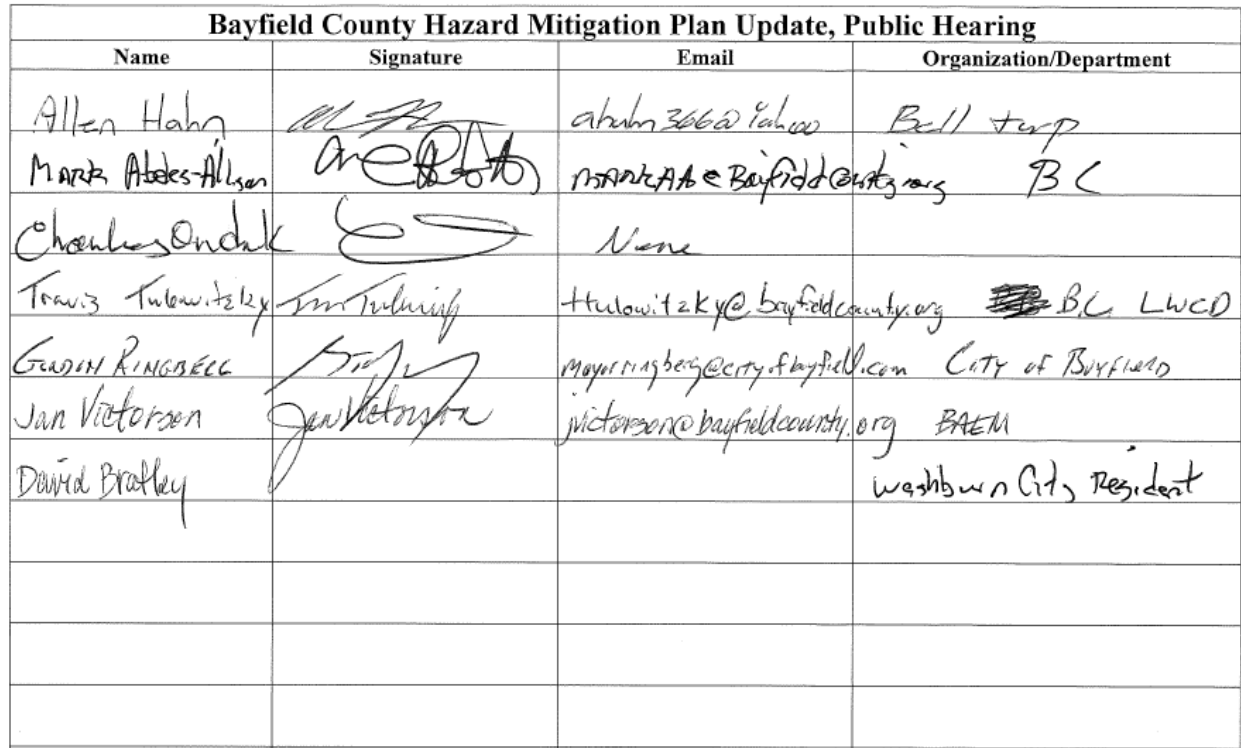 Bayfield County Hazard Mitigation Plan Update, Public Hearing
Name Signature Email Organization/Department
Allen Hahn ahahn366@Yahoo Bell twp
Mark Abeles-Allison MARKAA@Bayfieldcounty.org BC
Ondak None
Travis Tulowitzky ttulowitzky@bayfieldcounty.org B.C. LWCD
GORDON RINGBERG mayorringberg@cityofbayfield.com CITY of BAYFIELD
Jan Victorson Jan Victorson jvictorson@bayfieldcounty.org BAEM
David Bratley Washburn City Resident